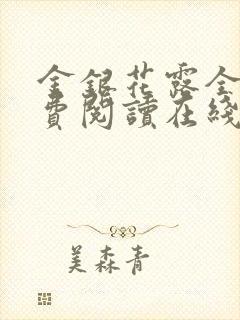 金銀花露全
費閱讀在綫
美森青